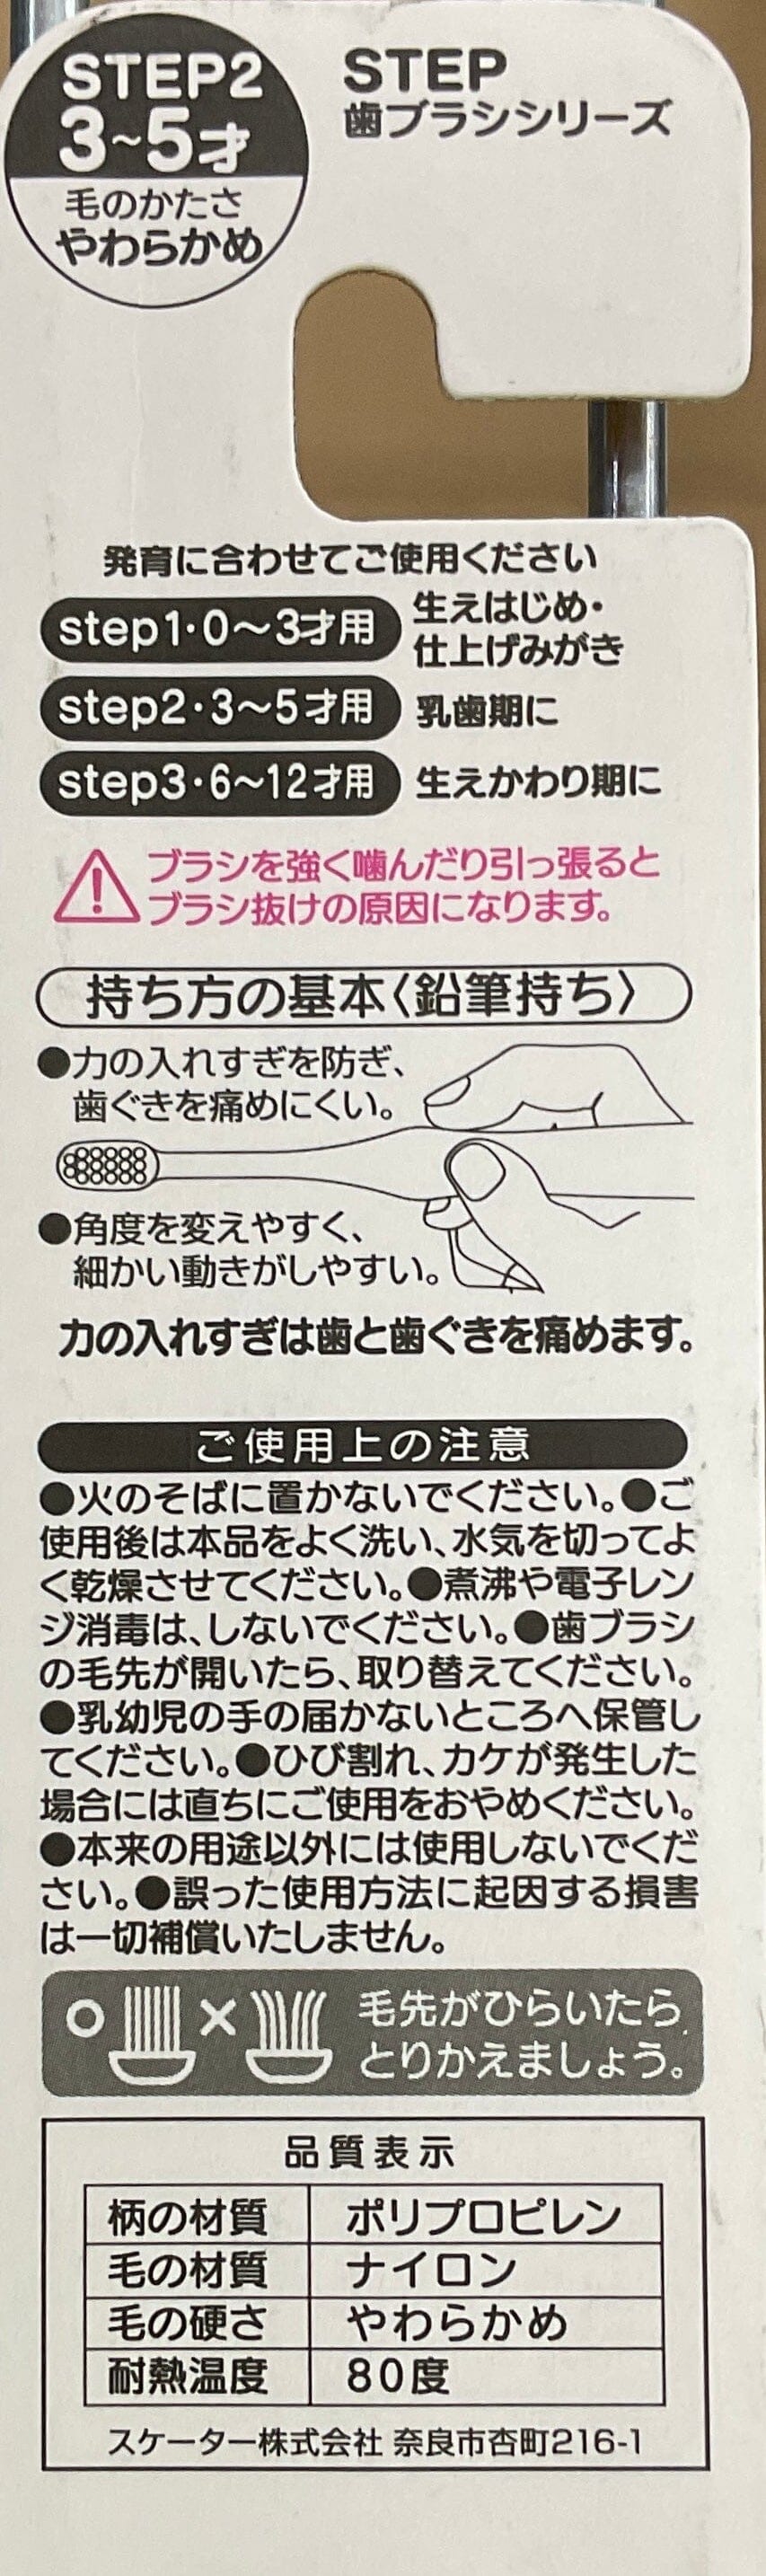 STEP2
3~5才
毛のかたさ
やわらかめ
STEP
歯ブラシシリーズ
発育に合わせてご使用ください
step1・0〜3才用 生えはじめ・
仕上げみがき
step2・3〜5才用 乳歯期に
step3・6〜12才用 生えかわり期に
ブラシを強く噛んだり引っ張ると
ブラシ抜けの原因になります。
持ち方の基本〈鉛筆持ち〉
●力の入れすぎを防ぎ、
歯ぐきを痛めにくい。
●角度を変えやすく、
細かい動きがしやすい。
力の入れすぎは歯と歯ぐきを痛めます。
ご使用上の注意
●火のそばに置かないでください。●ご
使用後は本品をよく洗い、水気を切ってよ
く乾燥させてください。●煮沸や電子レン
ジ消毒は、しないでください。●歯ブラシ
の毛先が開いたら、取り替えてください。
●乳幼児の手の届かないところへ保管し
てください。●ひび割れ、カケが発生した
場合には直ちにご使用をおやめください。
●本来の用途以外には使用しないでくだ
さい。●誤った使用方法に起因する損害
は一切補償いたしません。
○ × 毛先がひらいたら
とりかえましょう。
品質表示
柄の材質 ポリプロピレン
毛の材質 ナイロン
毛の硬さ やわらかめ
耐熱温度 80度
スケーター株式会社 奈良市杏町216-1